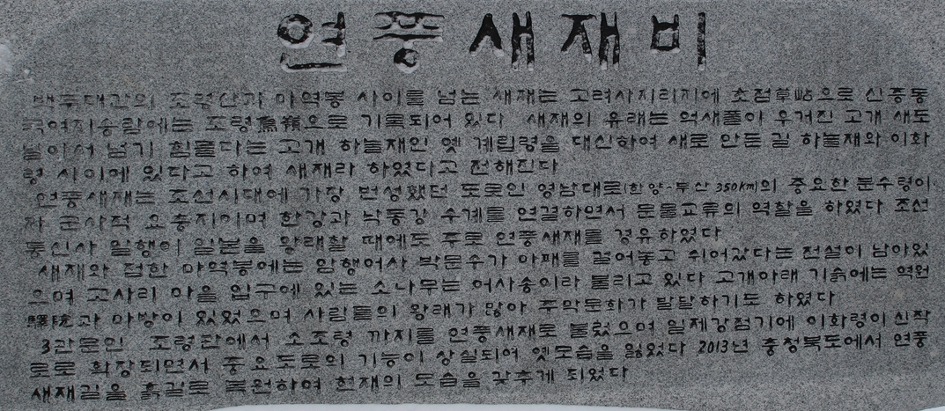 연풍새재비
백두대간의 조령산과 마역봉 사이를 넘는 새재는 고려사지리지에 초점草岾으로 신증동
국여지승람에는 조령鳥嶺으로 기록되어 있다 새재의 유래는 억새풀이 우거진 고개 새도
날아서 넘기 힘들다는 고개 하늘재인 옛 계립령을 대신하여 새로 만든 길 하늘재와 이화
령 사이에 있다고 하여 새재라 하였다고 전해진다
연풍새재는 조선시대에 가장 번성했던 도로인 영남대로(한양-부산 350km)의 중요한 분수령이
자 군사적 요충지이며 한강과 낙동강 수계를 연결하면서 문물교류의 역할을 하였다 조선
통신사 일행이 일본을 왕래할 때에도 주로 연풍새재를 경유하였다
새재와 접한 마역봉에는 암행어사 박문수가 마패를 걸어놓고 쉬어갔다는 전설이 남아있
으며 고사리 마을 입구에 있는 소나무는 어사송이라 불리고 있다 고개아래 기슭에는 역원
驛院과 마방이 있었으며 사람들의 왕래가 많아 주막문화가 발달하기도 하였다
3관문인 조령관에서 소조령 까지를 연풍새재로 불렀으며 일제강점기에 이화령이 신작
로로 확장되면서 중요도로의 기능이 상실되어 옛모습을 잃었다 2013년 충청북도에서 연풍
새재길을 흙길로 복원하여 현재의 모습을 갖추게 되었다